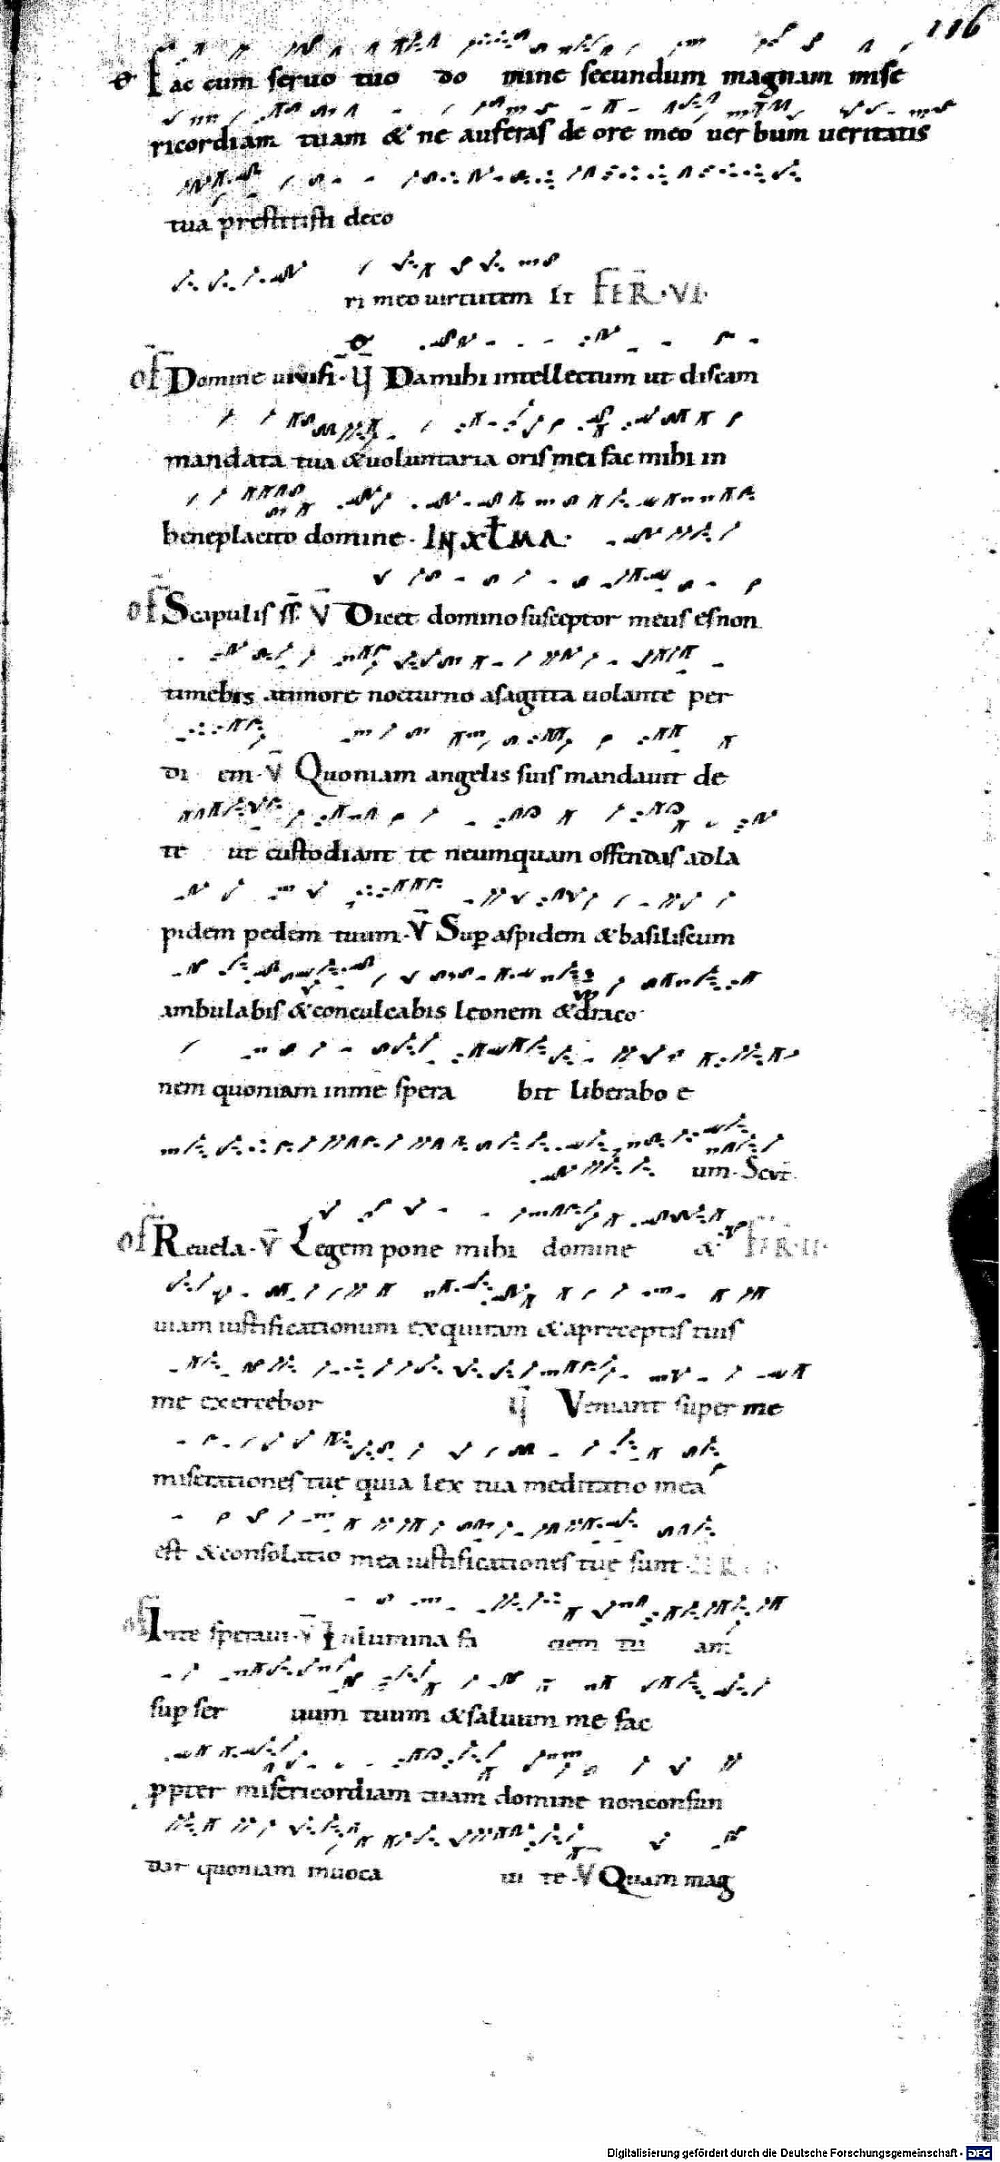 116
Fac cum servo tuo do mine secundum magnam mise
ricordiam tuam & ne auferas de ore meo verbum veritatis
tua prestitisti deco
ri meo uirtutem Et FER·VI·
of Domine uiuifi·
Damihi intellectum ut discam
mandata tua &uoluntaria oris mei fac mihi in
beneplacito domine·
of Scapulis V Dicet domino susceptor meus es non
timebis atimore nocturno asagitta uolante per
di em·V Quoniam angelis suis mandauit de
te ut custodiant te neumquam offendas adla
pidem pedem tuum·V Sup aspidem &basiliscum
ambulabis &conculcabis leonem &draco
nem quoniam inme spera bit liberabo e
um·Scut
of Reuela·V Legem pone mihi domine & FER·II·
uiam iustificationum exquiram &apreceptis tuis
me exercebor Veniant super me
miserationes tue quia lex tua meditatio mea
est &consolatio mea iustificationes tue sunt·
of Inte speraui·V Inlumina fa ciem tu am
sup ser uum tuum &saluum me fac
ppter misericordiam tuam domine nonconfun
dar quoniam inuoca ui te·V Quam mag
Digitalisierung gefördert durch die Deutsche Forschungsgemeinschaft - DFG